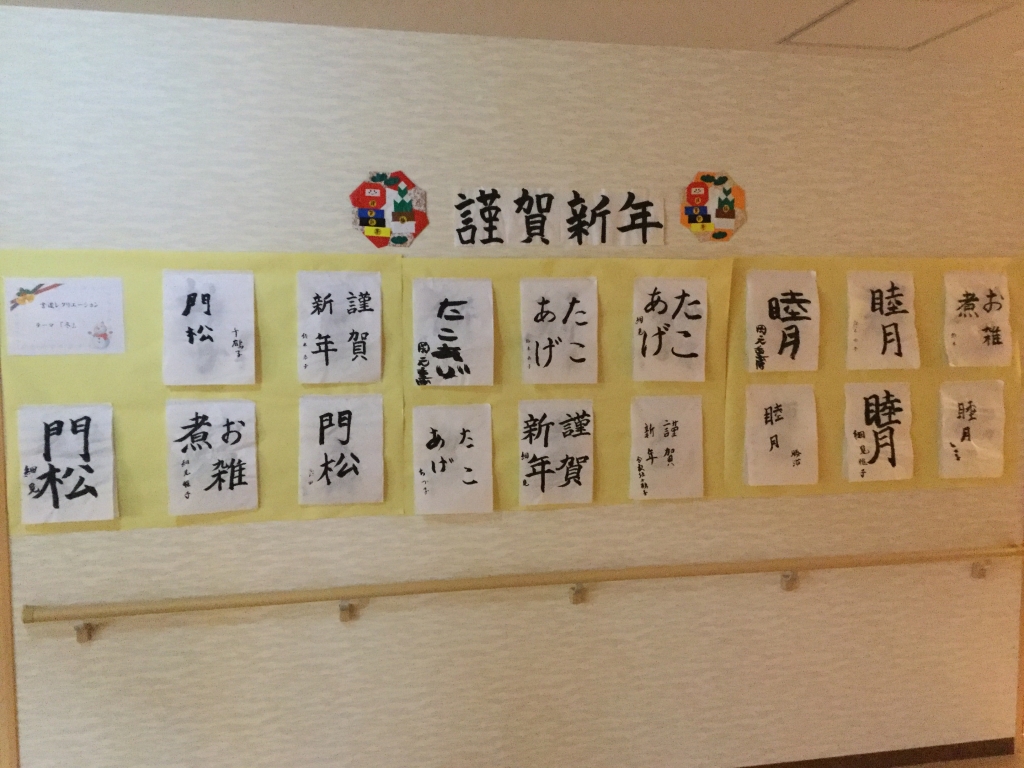 謹賀新年
書道レクリエーション
テーマ「冬」
門松
謹賀
新年
たこあげ
たこ
あげ
たこ
あげ
細見
睦月
睦月
お雑
煮
門松
細見
お雑
煮
門松
たこ
あげ
謹賀
新年
細見
謹賀
新年
睦月
勝治
睦月
睦月